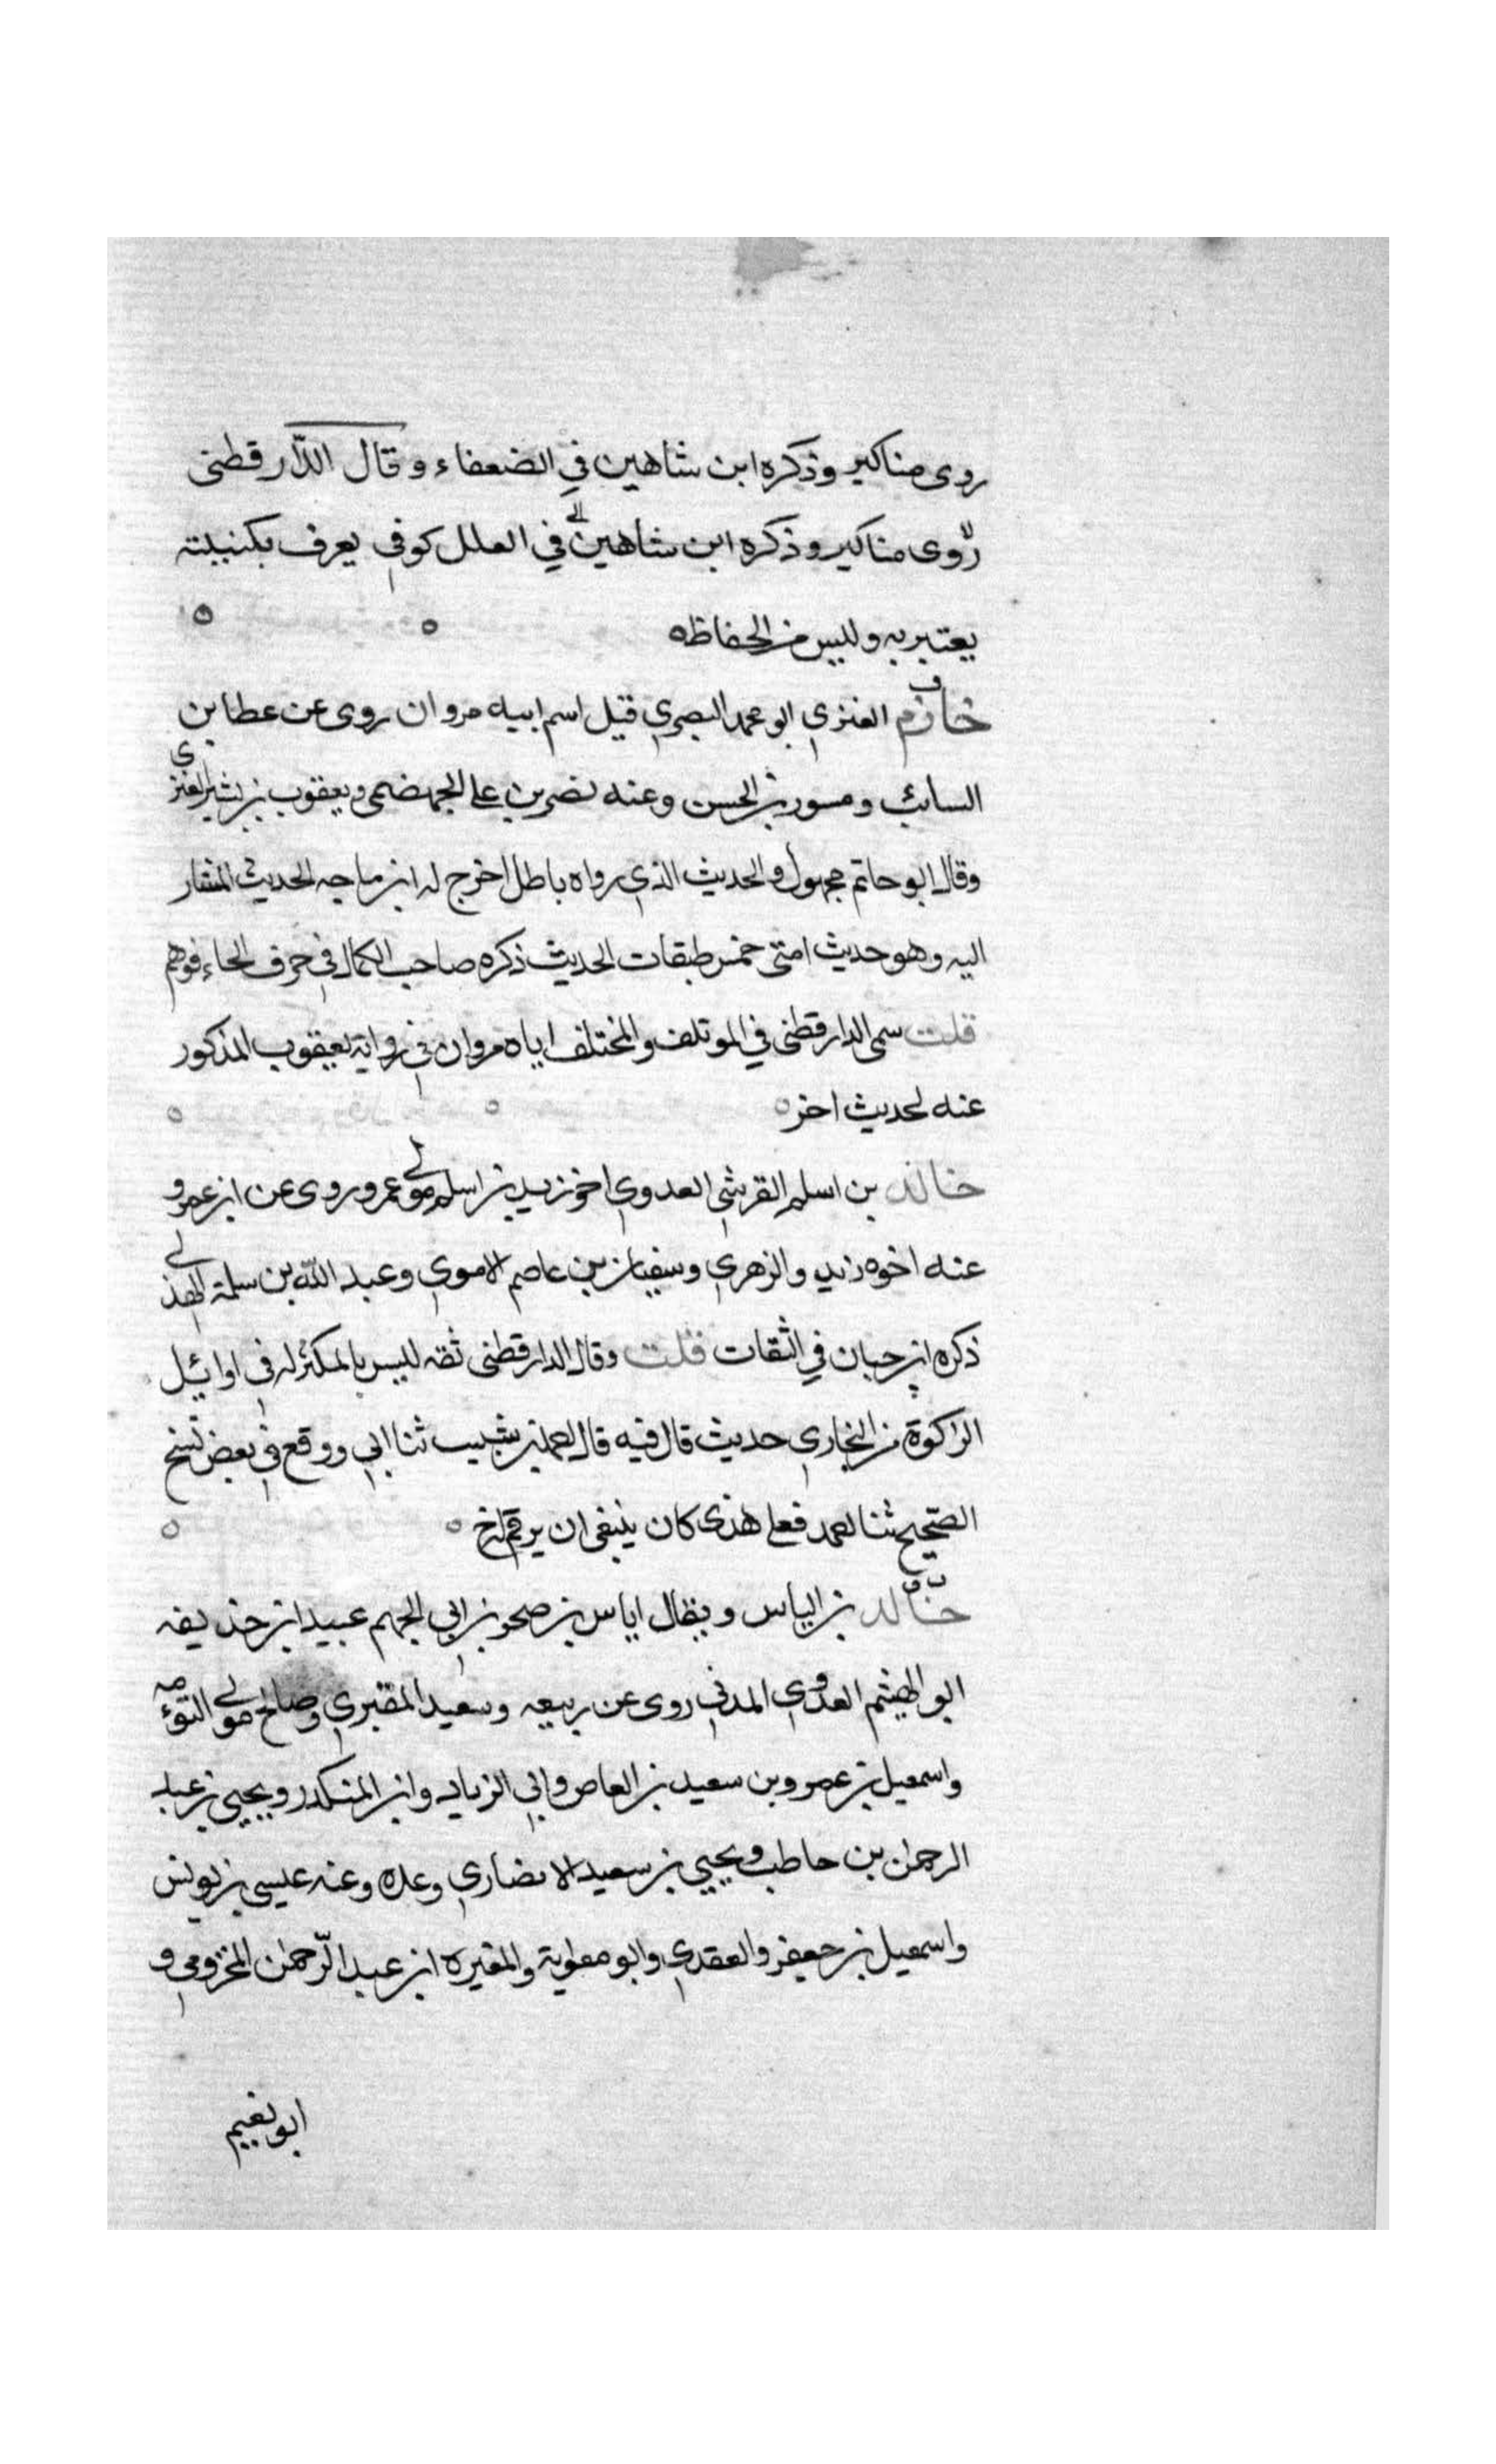 روى مناكير وذكره ابن شاهين في الضعفاء وقال الدّارقطنى
روى مناكير وذكره ابن شاهين في العلل كوفي يعرف بكنيته
يعتبر به وليس من الحفاظ ه
خازم العنزي ابو محمد البصري قيل اسم ابيه مروان روى عن عطا بن
السائب ومسور بن الحسن وعنه نصر بن علي الجهضمى ويعقوب بن بشير العنزى
وقال ابو حاتم مجهول والحديث الذي رواه باطل اخرج له ابن ماجه الحديث المشار
اليه وهو حديث امتى خمس طبقات الحديث ذكره صاحب الكمال في حرف الحاء فوهم
قلت سمى الدارقطنى في الموتلف والمختلف اباه مروان في رواية يعقوب المذكور
عنه لحديث اخر ه
خالد بن اسلم القرشي العدوي اخو زيد بن اسلم مولى عمر وروى عن ابن عمر و
عنه اخوه زيد والزهري وسفيان بن عاصم الاموي وعبد اللّه بن سلمة الهذلي
ذكره ابن حبان في الثقات قلت وقال الدارقطنى ثقه ليس بالمكثر له في اوائيل
الزاكوة من البخاري حديث قال فيه قال احمد بن شبيب ثنا ابي ووقع في بعض نسخ
الصحيح ثنا احمد فعلى هذى كان ينبغى ان يرقم له خ
خالد بن الياس ويقال اياس بن صخر بن ابي الجهم عبيد ابن حذيفه
ابو الهيثم العدوي المدني روى عن ربيعه وسعيد المقبري وصالح مولى التوءمه
واسمعيل بن عمرو بن سعيد بن العاص وابي الزناد وابن المنكدر ويحيى بن عبد
الرحمن بن حاطب ويحيى بن سعيد الانصاري وعده وعنه عيسى بن يونس
واسمعيل بن جعفر والعقدي وابو معاوية والمغيره ابن عبد الرّحمان المخزومي و
ابو نعيم